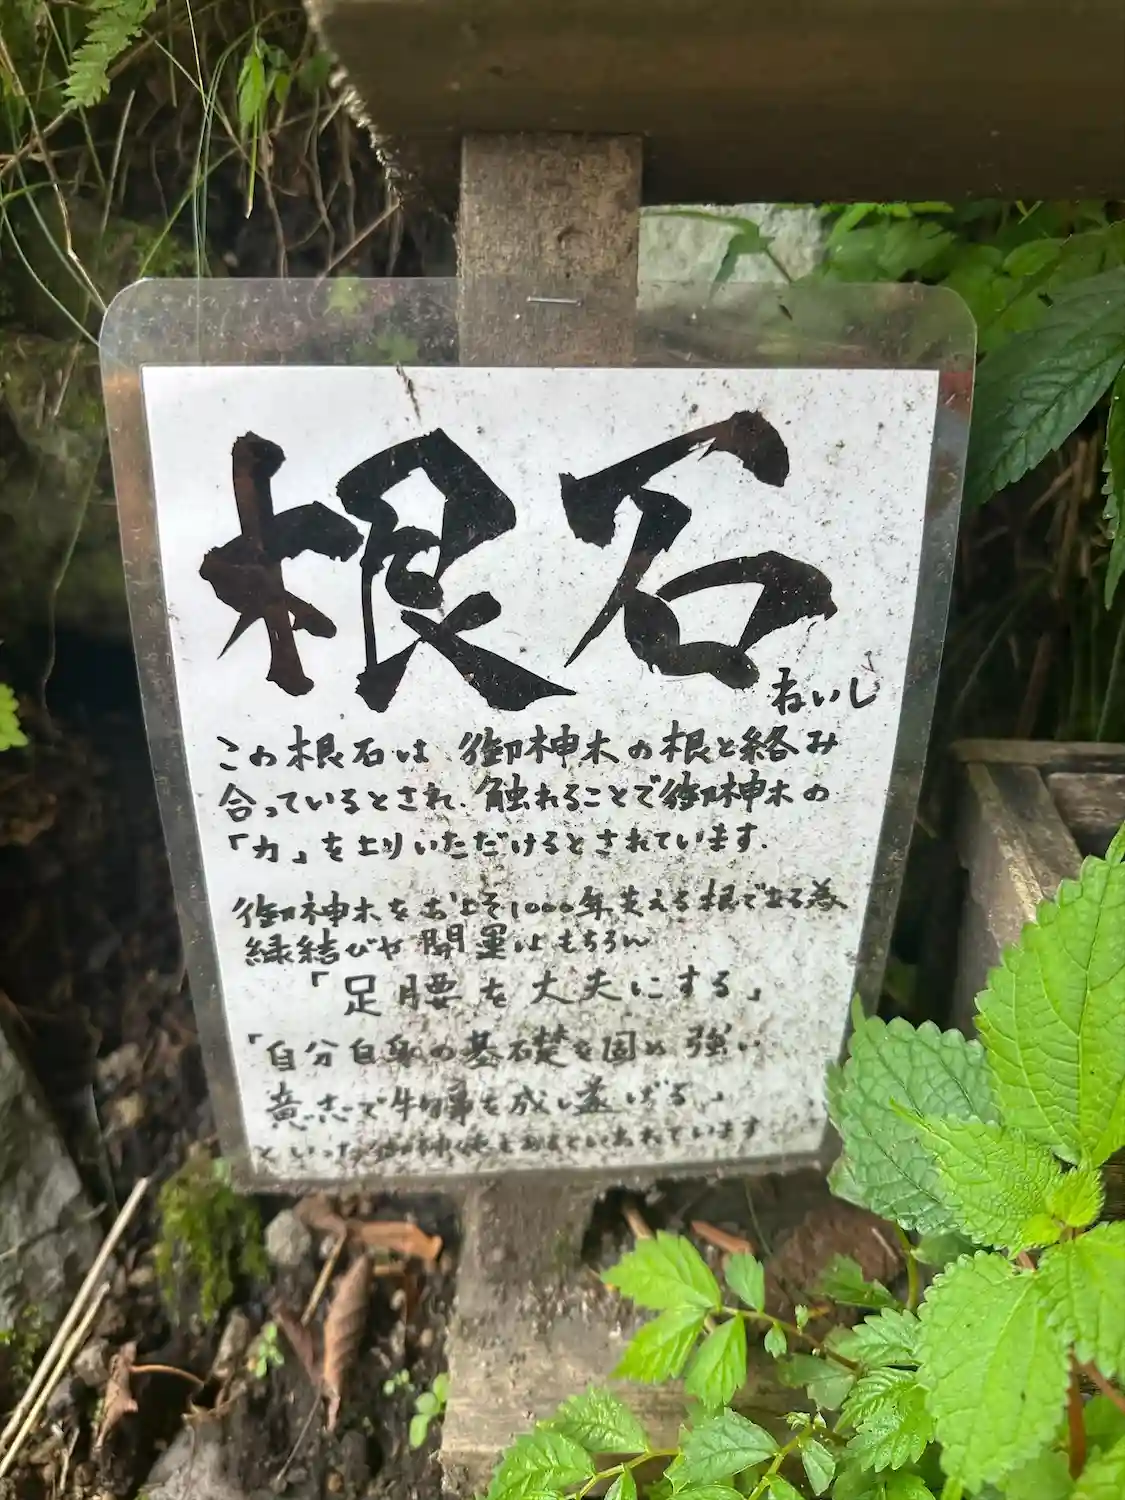 根石
ねいし
この根石は 御神木の根と絡み
合っているとされ、触れることで御神木の
「力」をよりいただけるとされています.
御神木をおよそ1000年支える根である為
縁結びや開運はもちろん
「足腰を大夫にする」
「自分自身の基礎を固め 強い
意志で物事を成し遂げる」
といった御神徳もあるといわれています